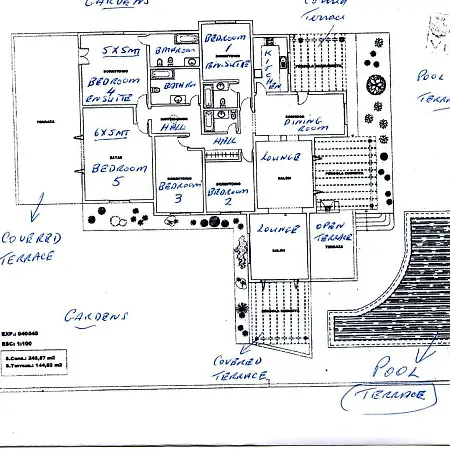 GARDENS
COVERED
TERRACE
5X5MT
BATHROOM
BEDROOM
1
ENSUITE
KITCHEN
DORMITORIO
BEDROOM
4
ENSUITE
BATHRM
POOL
TERRACE
TERRAZA
6X5MT
HALL
HALL
COMEDOR
DINING
ROOM
ESTAR
BEDROOM
5
DORMITORIO
BEDROOM
3
DORMITORIO
BEDROOM
2
LOUNGE
SALON
PERGOLA CUBIERTA
COVERED
TERRACE
LOUNGE
SALON
OPEN
TERRACE
TERRAZA
GARDENS
EXP.: 040345
ESC: 1:100
S.Const.: 245,57 m2
S.Terraz.: 144,62 m2
COVERED
TERRACE
POOL
(TERRACE)